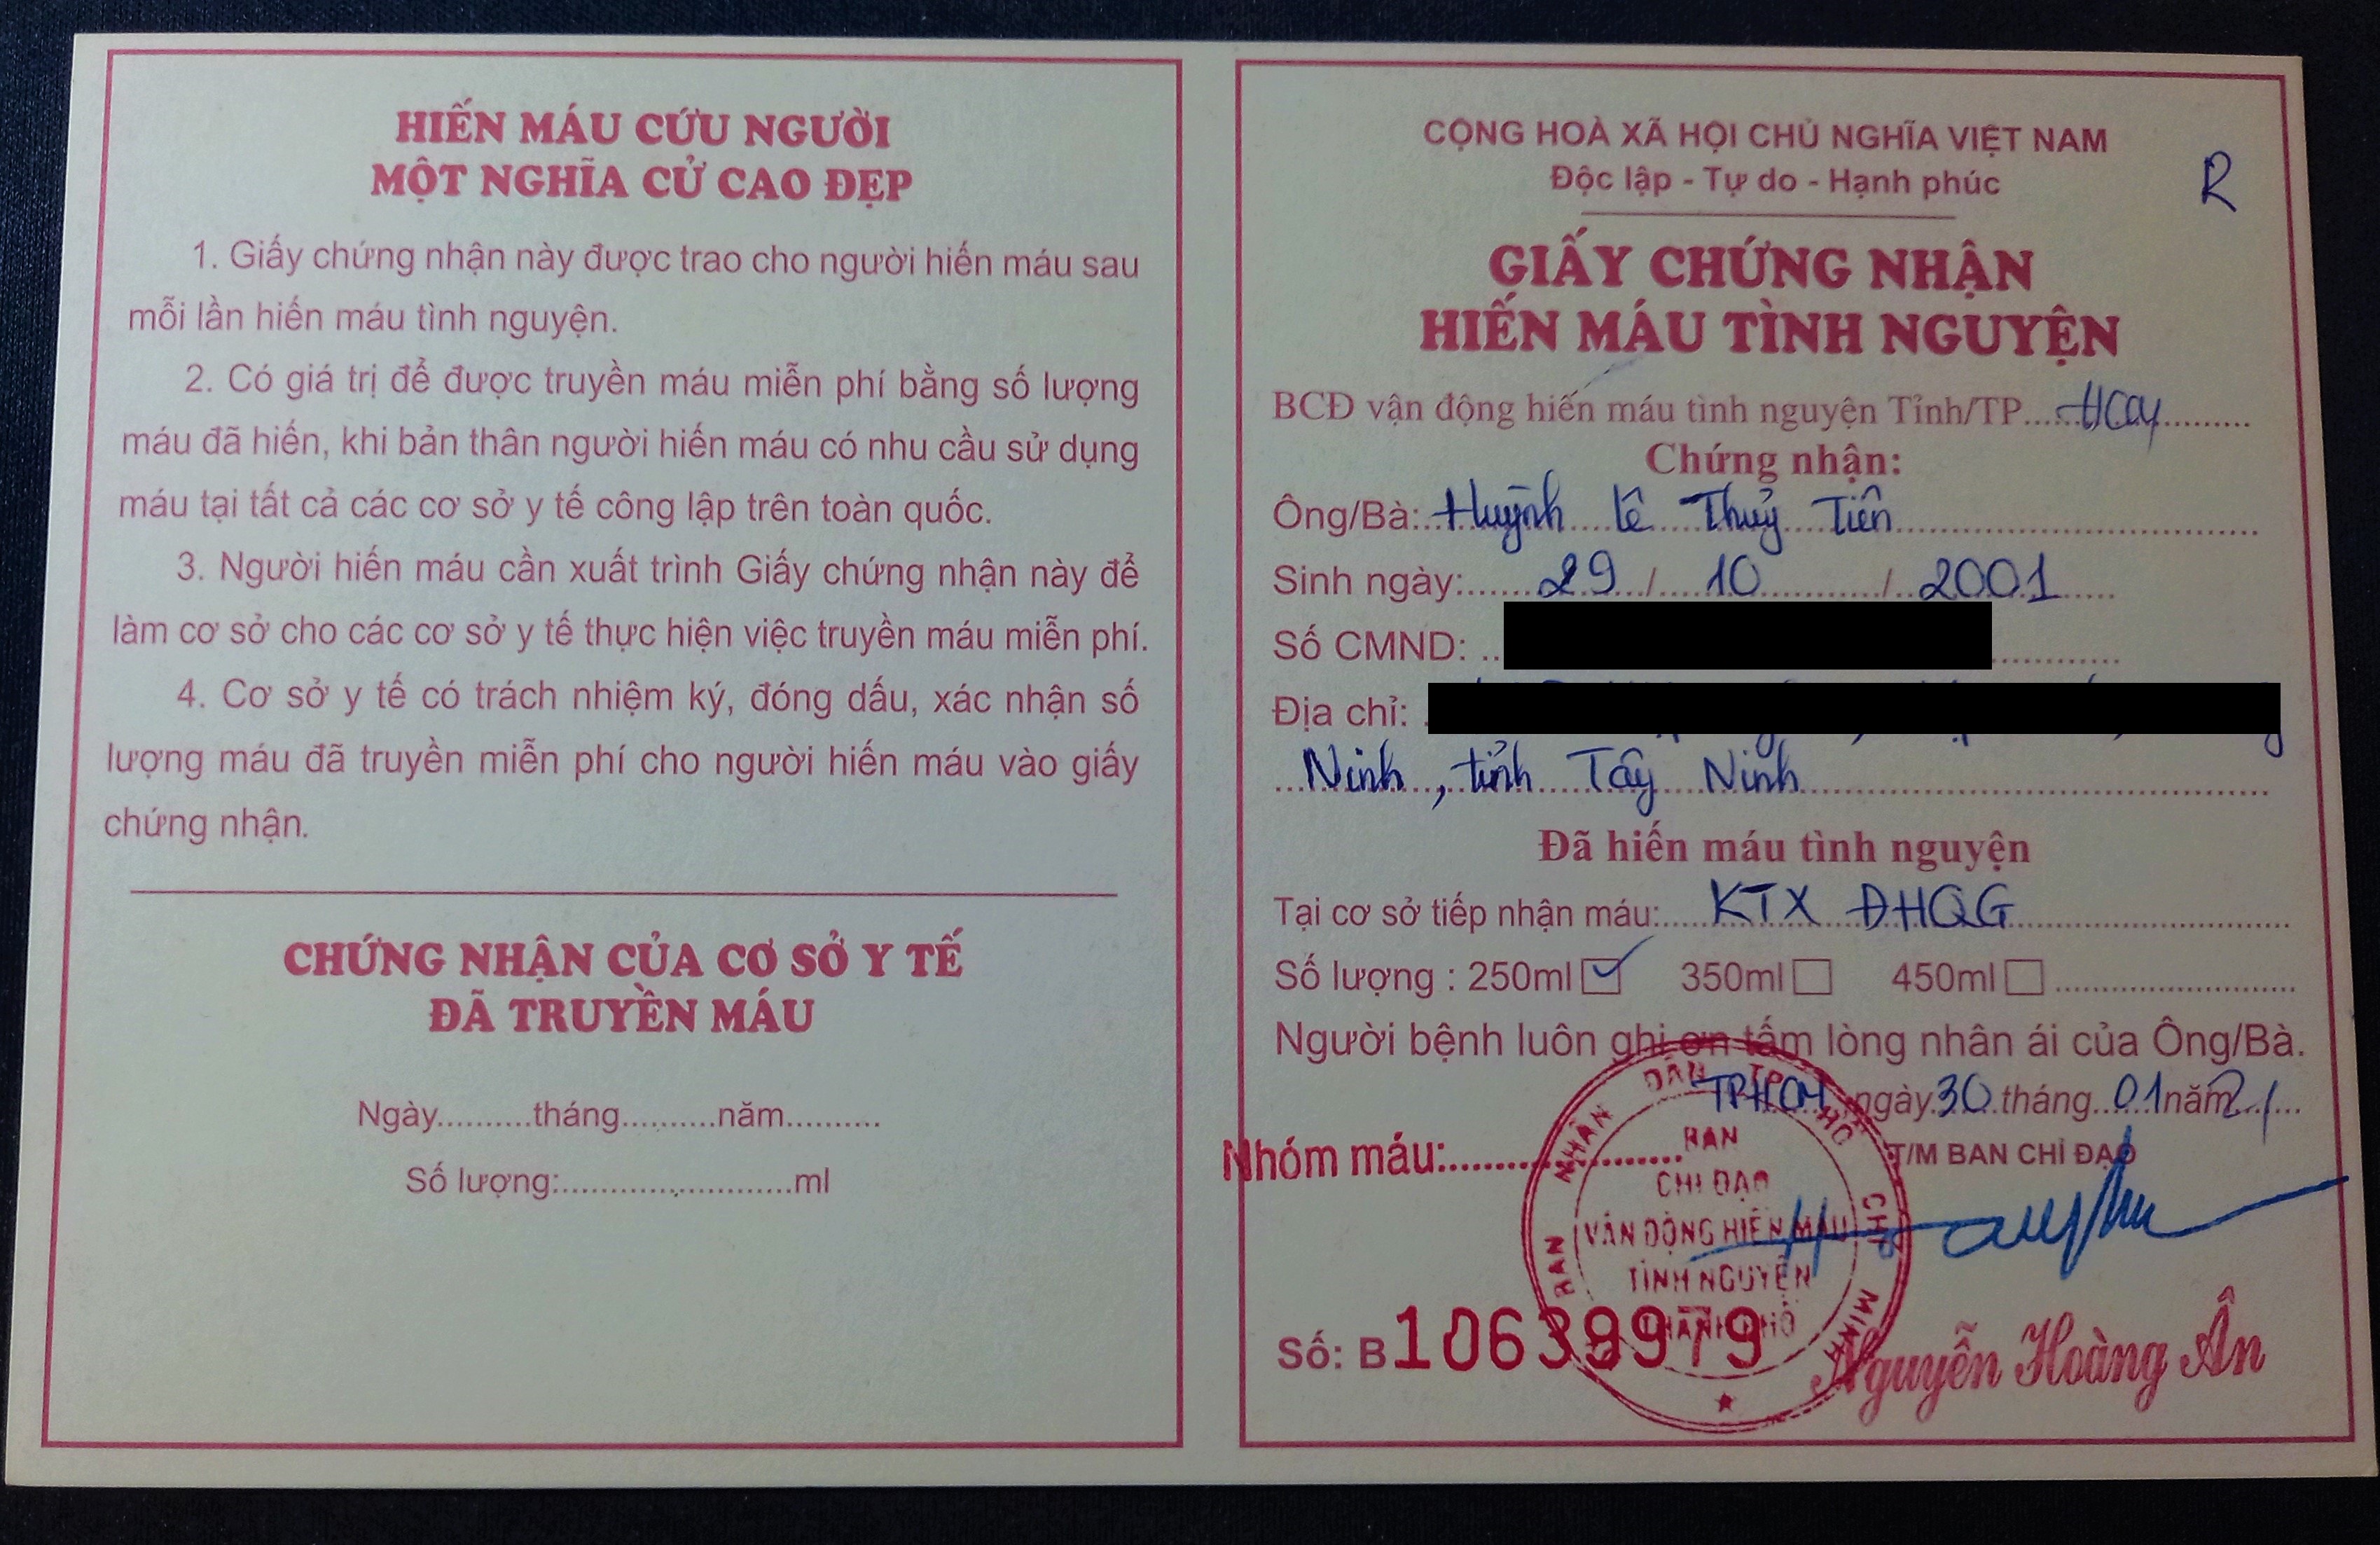 HIẾN MÁU CỨU NGƯỜI
MỘT NGHĨA CỬ CAO ĐẸP
1. Giấy chứng nhận này được trao cho người hiến máu sau
mỗi lần hiến máu tình nguyện.
2. Có giá trị để được truyền máu miễn phí bằng số lượng
máu đã hiến, khi bản thân người hiến máu có nhu cầu sử dụng
máu tại tất cả các cơ sở y tế công lập trên toàn quốc.
3. Người hiến máu cần xuất trình Giấy chứng nhận này để
làm cơ sở cho các cơ sở y tế thực hiện việc truyền máu miễn phí.
4. Cơ sở y tế có trách nhiệm ký, đóng dấu, xác nhận số
lượng máu đã truyền miễn phí cho người hiến máu vào giấy
chứng nhận.
CHỨNG NHẬN CỦA CƠ SỞ Y TẾ
ĐÃ TRUYỀN MÁU
Ngày..........tháng..........năm..........
Số lượng:.........................ml
CỘNG HOÀ XÃ HỘI CHỦ NGHĨA VIỆT NAM
Độc lập - Tự do - Hạnh phúc
R
GIẤY CHỨNG NHẬN
HIẾN MÁU TÌNH NGUYỆN
BCĐ vận động hiến máu tình nguyện Tỉnh/TP.... HCM
Chứng nhận:
Ông/Bà: Huỳnh Lê Thủy Tiên
Sinh ngày: 29 / 10 / 2001
Số CMND:
Địa chỉ:
Ninh, tỉnh Tây Ninh
Đã hiến máu tình nguyện
Tại cơ sở tiếp nhận máu: KTX ĐHQG
Số lượng : 250ml ✓ 350ml 450ml
Người bệnh luôn ghi ơn tấm lòng nhân ái của Ông/Bà.
TPHCM ngày 30 tháng 01 năm 21
Nhóm máu:....................
T/M BAN CHỈ ĐẠO
BAN NHÂN DÂN TP HỒ CHÍ MINH
BAN
CHỈ ĐẠO
VẬN ĐỘNG HIẾN MÁU
TÌNH NGUYỆN
THÀNH PHỐ
Số: B 10639979
Nguyễn Hoàng Ân